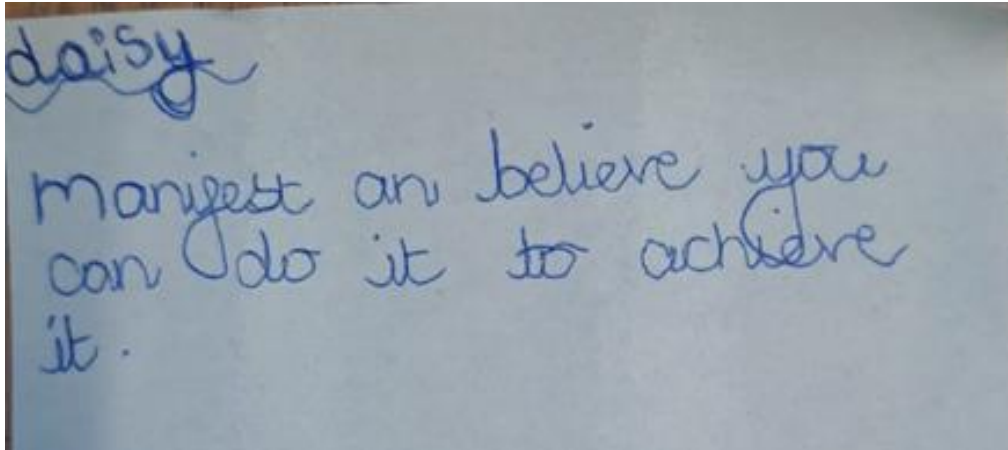 daisy
Manifest an believe you
can do it to achieve
it.